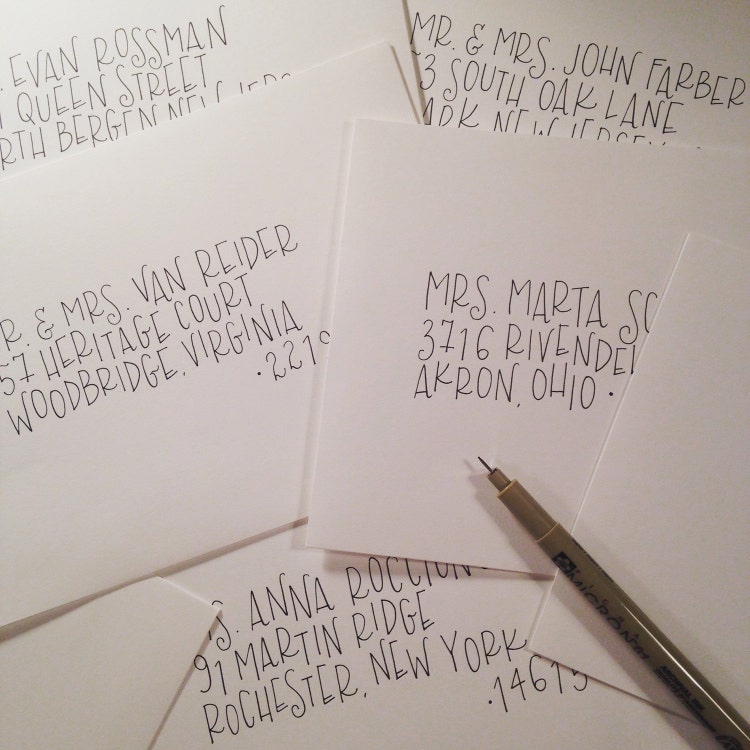 . EVAN ROSSMAN
QUEEN STREET
RTH BERGEN NEW JERS
MR. & MRS. JOHN FARBER
3 SOUTH OAK LANE
ARK NEW JERSEY
R. & MRS. VAN REIDER
57 HERITAGE COURT
WOODBRIDGE, VIRGINIA
·2219
MRS. MARTA SC
3716 RIVENDEL
AKRON, OHIO ·
S. ANNA ROCCION
91 MARTIN RIDGE
ROCHESTER, NEW YORK
·14615
MICRON